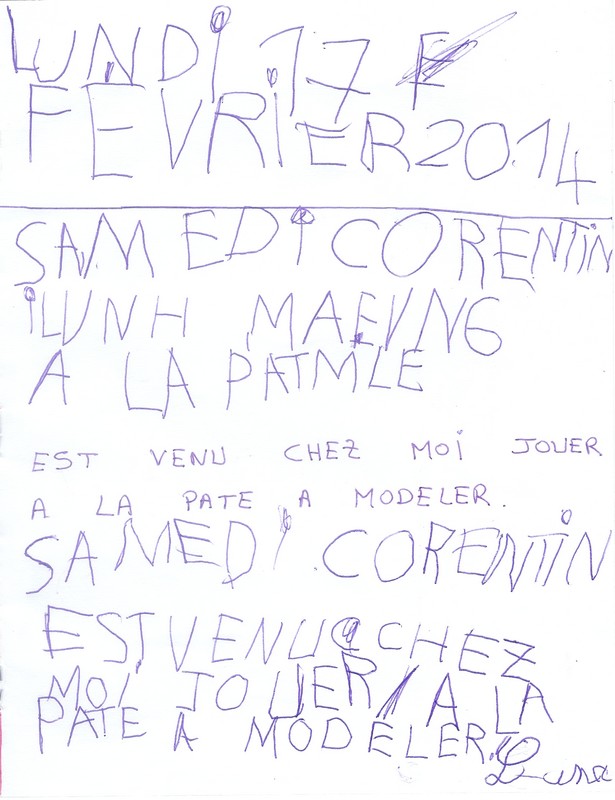 LUNDI 17 F
FEVRIER 2014
SAMEDI CORENTIN
iLUNH MAEVNG
A LA PATMLE
EST VENU CHEZ MOI JOUER
A LA PATE A MODELER.
SAMEDI CORENTIN
EST VENU CHEZ
MOI JOUER A LA
PATE A MODELER.
Luna